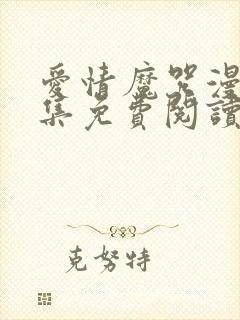 愛情魔咒漫
集免費閱讀
克努特